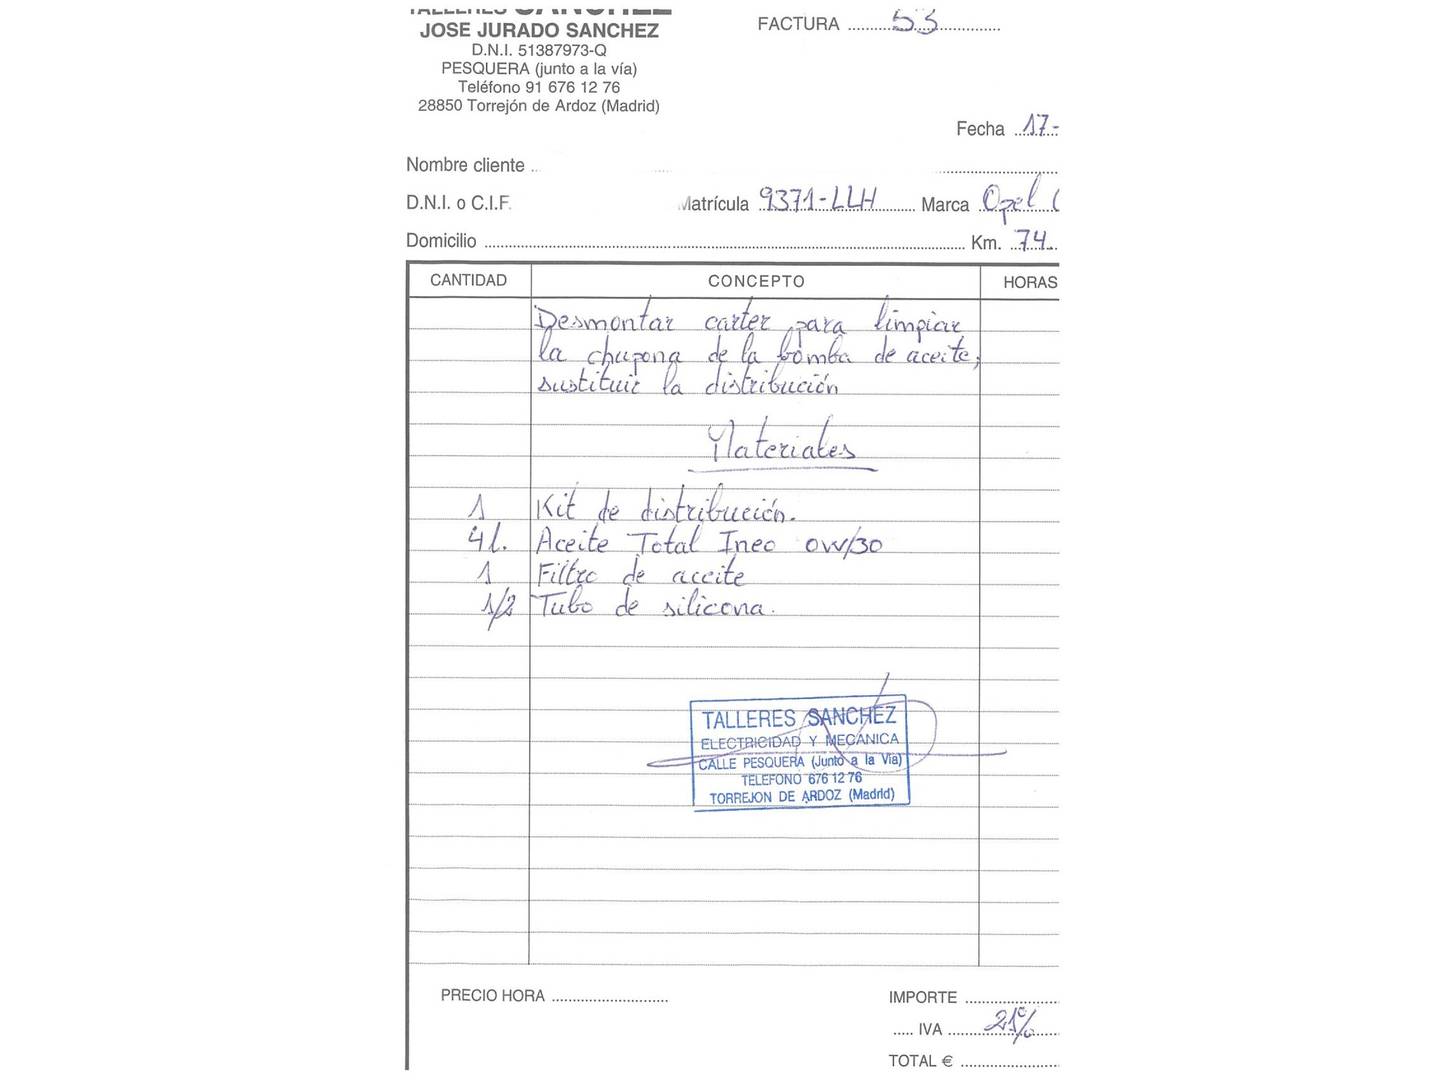 TALLERES SANCHEZ
JOSE JURADO SANCHEZ
D.N.I. 51387973-Q
PESQUERA (junto a la vía)
Teléfono 91 676 12 76
28850 Torrejón de Ardoz (Madrid)
FACTURA 53
Fecha 17-
Nombre cliente
D.N.I. o C.I.F. Matrícula 9371-LLH Marca Opel
Domicilio Km. 74
CANTIDAD CONCEPTO HORAS
Desmontar carter para limpiar
la chupona de la bomba de aceite,
sustituir la distribución
Materiales
1 Kit de distribución.
4l. Aceite Total Ineo 0W/30
1 Filtro de aceite
1/2 Tubo de silicona.
TALLERES SANCHEZ
ELECTRICIDAD Y MECANICA
CALLE PESQUERA (Junto a la Via)
TELEFONO 676 12 76
TORREJON DE ARDOZ (Madrid)
PRECIO HORA IMPORTE
IVA 21%
TOTAL €